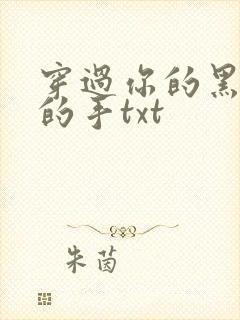 穿過你的黑
的手txt
朱茵